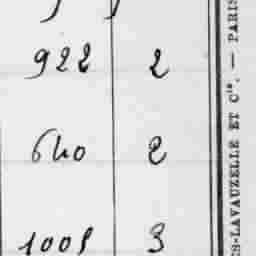 922 2
640 2
1005 3
ES-LAVAUZELLE ET Cie. — PARIS